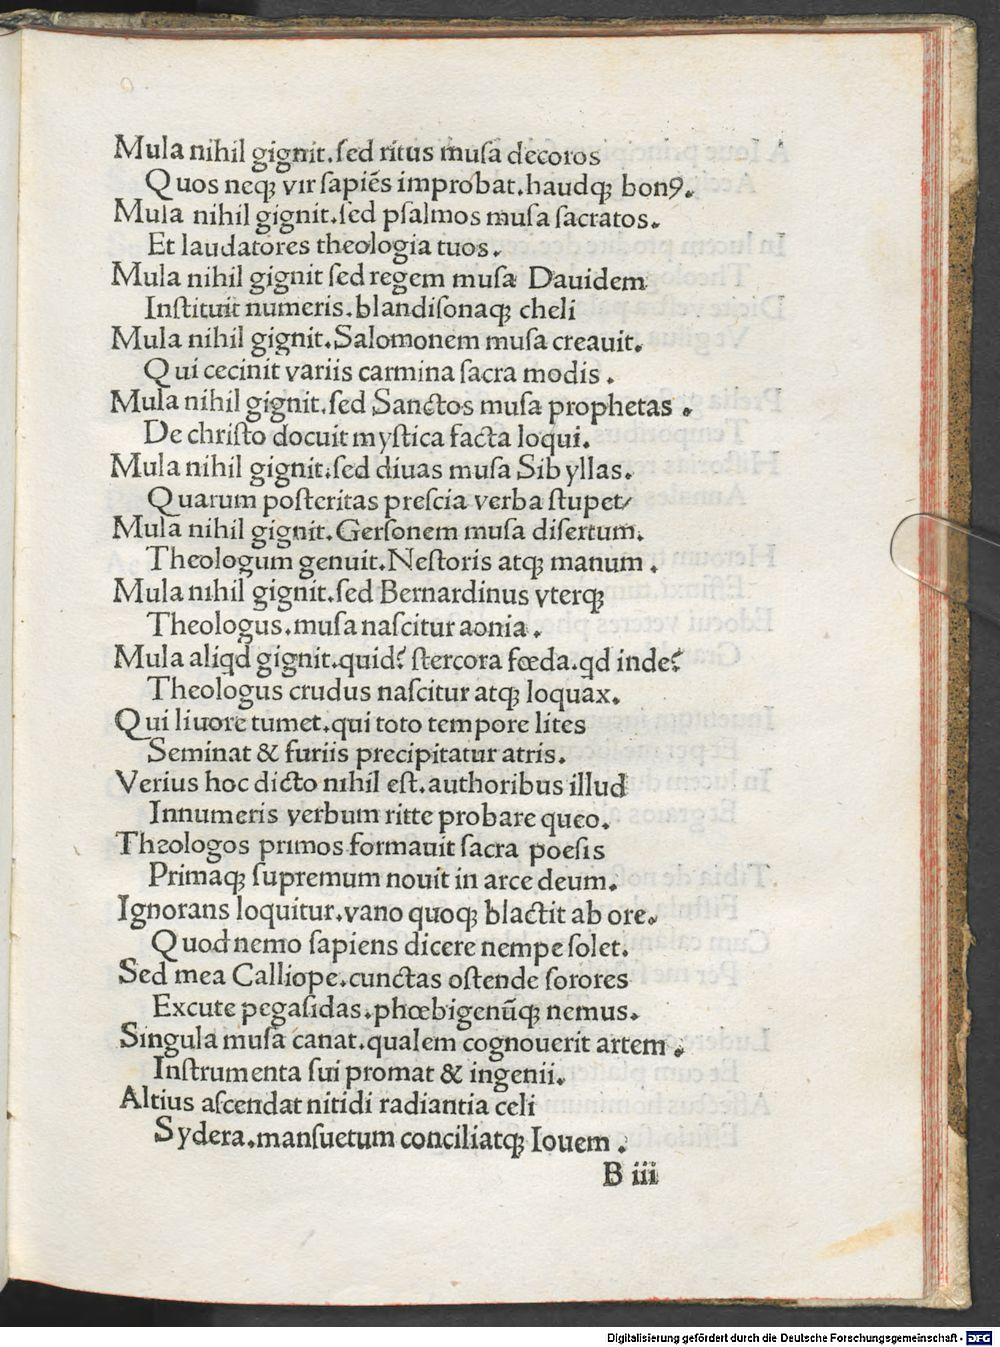 Mula nihil gignit.ſed ritus muſa decoros
Quos neqꝫ vir ſapiẽs improbat.haudqꝫ bonꝰ.
Mula nihil gignit.ſed pſalmos muſa ſacratos.
Et laudatores theologia tuos.
Mula nihil gignit ſed regem muſa Dauidem
Inſtituit numeris.blandiſonaqꝫ cheli
Mula nihil gignit.Salomonem muſa creauit.
Qui cecinit variis carmina ſacra modis.
Mula nihil gignit.ſed Sanctos muſa prophetas.
De chriſto docuit myſtica facta loqui.
Mula nihil gignit:ſed diuas muſa Sibyllas.
Quarum poſteritas preſcia verba ſtupet/
Mula nihil gignit.Gerſonem muſa diſertum.
Theologum genuit.Neſtoris atqꝫ manum.
Mula nihil gignit.ſed Bernardinus vterqꝫ
Theologus.muſa naſcitur aonia.
Mula aliqd gignit.quid? ſtercora fœda.qd inde?
Theologus crudus naſcitur atqꝫ loquax.
Qui liuore tumet.qui toto tempore lites
Seminat & furiis precipitatur atris.
Verius hoc dicto nihil eſt.authoribus illud
Innumeris verbum ritte probare queo.
Theologos primos formauit ſacra poeſis
Primaqꝫ ſupremum nouit in arce deum.
Ignorans loquitur.vano quoqꝫ blactit ab ore.
Quod nemo ſapiens dicere nempe ſolet.
Sed mea Calliope.cunctas oſtende ſorores
Excute pegaſidas.phœbigenũqꝫ nemus.
Singula muſa canat.qualem cognouerit artem.
Inſtrumenta ſui promat & ingenii.
Altius aſcendat nitidi radiantia celi
Sydera.manſuetum conciliatqꝫ Iouem.
B iii
Digitalisierung gefördert durch die Deutsche Forschungsgemeinschaft - DFG